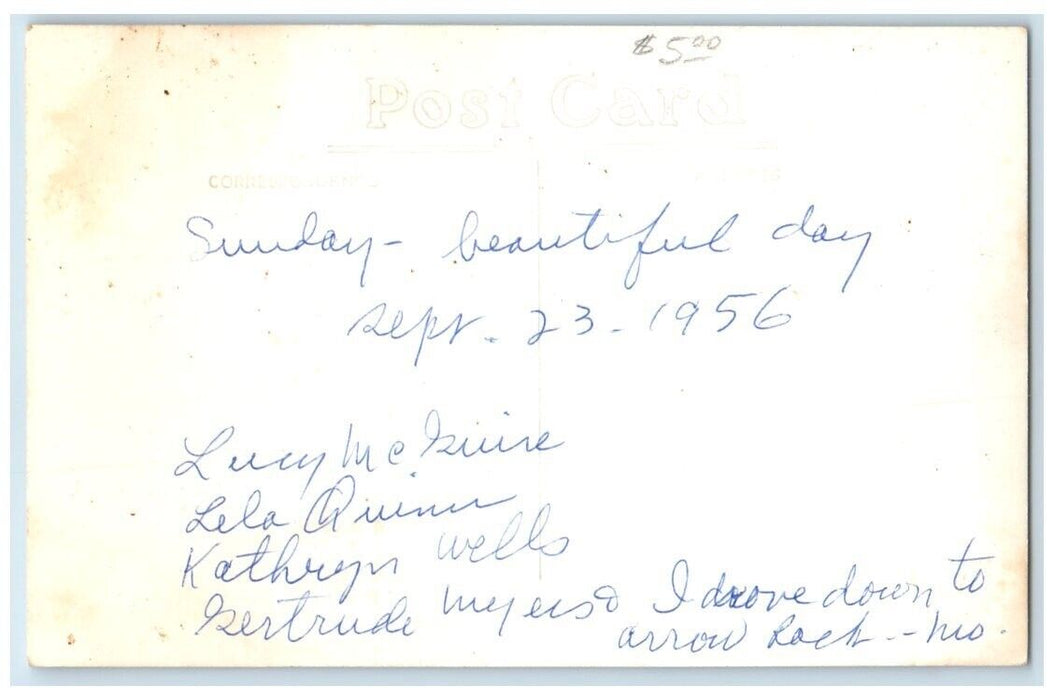 $5.00
Post Card
CORRESPONDENCE
Sunday - beautiful day
sept. 23 - 1956
Lucy McGuire
Lela Quinn
Kathryn Wells
Gertrude Myers & I drove down to
arrow Rock - Mo.